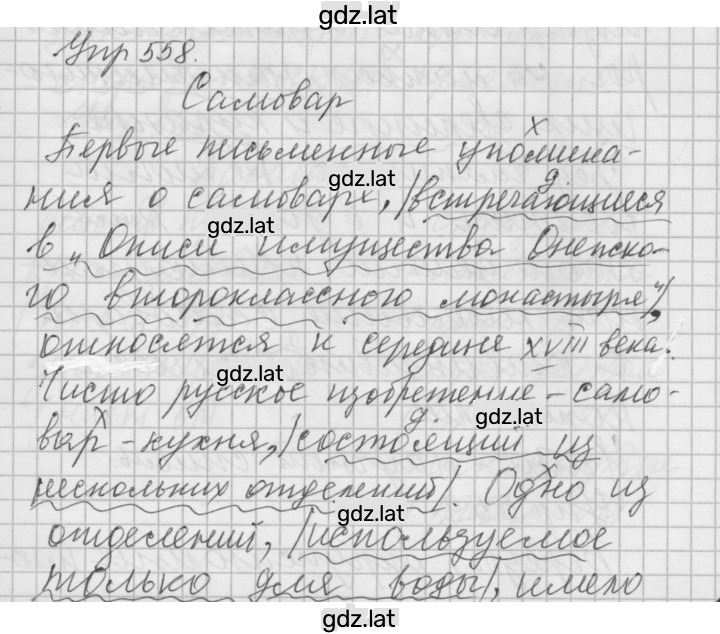 gdz.lat
Упр 558.
Самовар
Первые письменные упомина-
ния о самоварх, |встречающиеся
gdz.lat
gdz.lat
в „Описи имущества Онепско-
го второклассного монастыря"|,
относятся к середине XVIII века.
gdz.lat
Чисто русское изобретение - само-
gdz.lat
вар - кухня, |состоящий из
нескольких отделений|. Одно из
gdz.lat
отделений, |используемое
только для воды|, имело
gdz.lat
gdz.lat